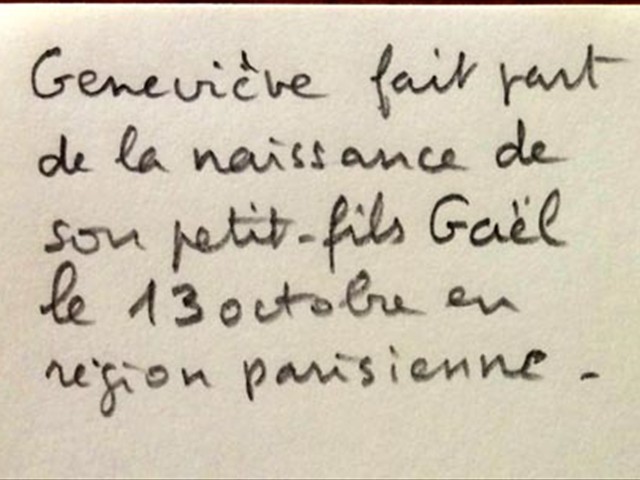 Geneviève fait part
de la naissance de
son petit-fils Gaël
le 13 octobre en
région parisienne.